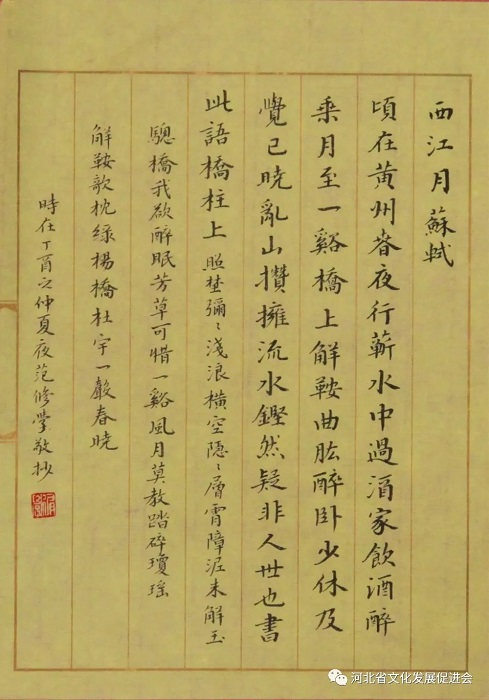 西江月 蘇軾
頃在黃州春夜行蘄水中過酒家飲酒醉
乘月至一谿橋上解鞍曲肱醉卧少休及
覺已曉亂山攢擁流水鏗然疑非人世也書
此語橋柱上 照埜彌〻淺浪橫空隱〻層霄障泥未解玉
驄橋我欲醉眠芳草可惜一谿風月莫教踏碎瓊瑤
解鞍歌枕綠楊橋杜宇一聲春曉
時在丁酉之仲夏夜范修學敬抄
河北省文化发展促进会